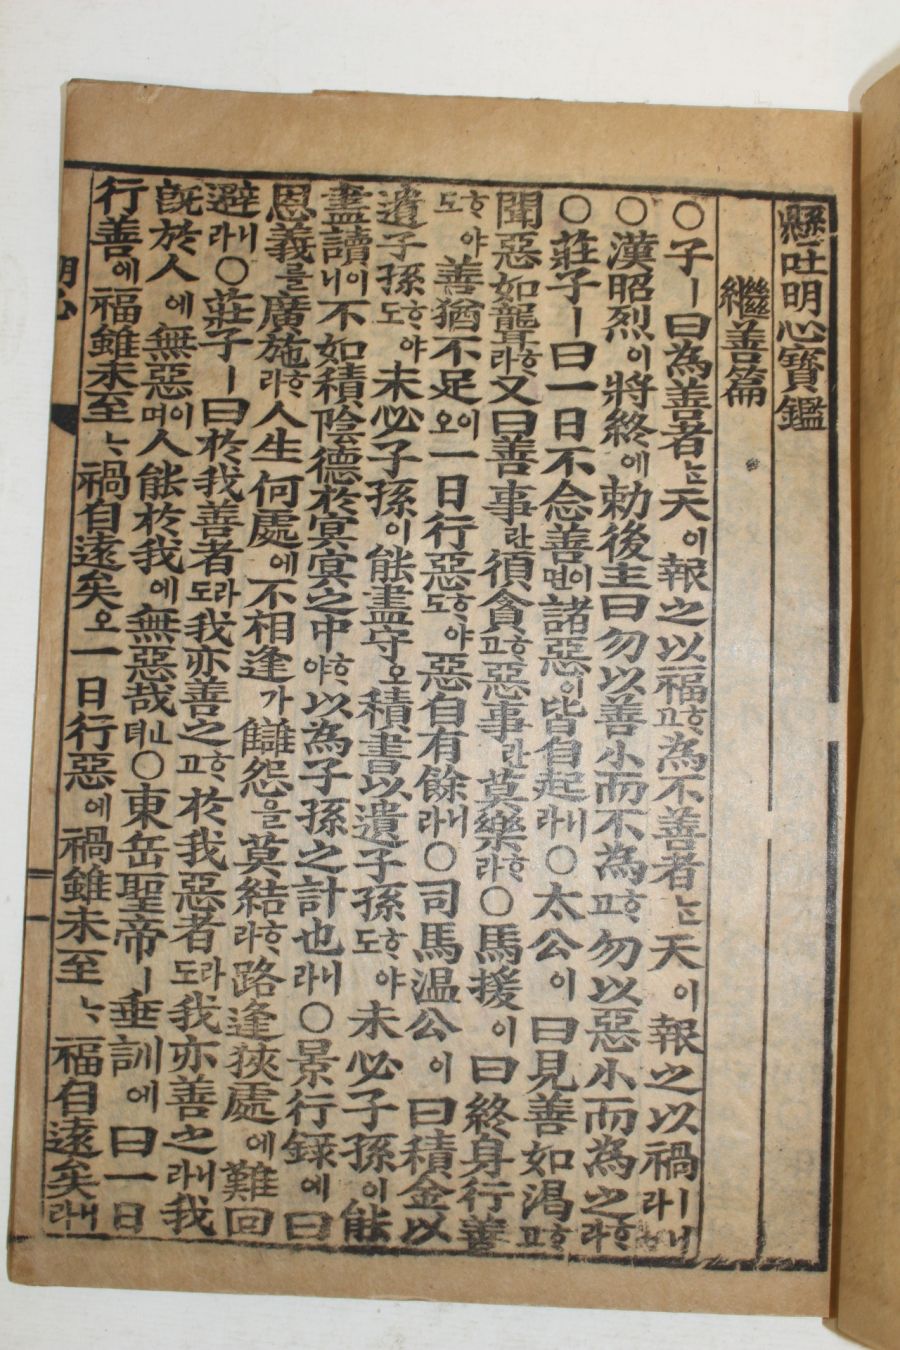 懸吐明心寶鑑
繼善篇
○子ㅣ曰為善者ᄂᆞᆫ天이報之以福ᄒᆞ고為不善者ᄂᆞᆫ天이報之以禍ㅣ니라
○漢昭烈이將終에勅後主曰勿以善小而不為ᄒᆞ고勿以惡小而為之ᄒᆞ라
○莊子ㅣ曰一日不念善이면諸惡이皆自起니라○太公이曰見善如渴ᄒᆞ고
聞惡如聾ᄒᆞ라又曰善事란須貪ᄒᆞ고惡事란莫樂ᄒᆞ라○馬援이曰終身行善
ᄒᆞ야도善猶不足이오一日行惡ᄒᆞ야도惡自有餘니라○司馬温公이曰積金以
遺子孫ᄒᆞ야도未必子孫이能盡守오積書以遺子孫ᄒᆞ야도未必子孫이能
盡讀이니不如積陰德於冥冥之中ᄒᆞ야以為子孫之計也니라○景行録에曰
恩義를廣施ᄒᆞ라人生何處에不相逢가讎怨을莫結ᄒᆞ라路逢狹處에難回
避니라○莊子ㅣ曰於我善者라도我亦善之ᄒᆞ고於我惡者라도我亦善之니라我
旣於人에無惡이며人能於我에無惡哉닌뎌○東岳聖帝ㅣ垂訓에曰一日
行善에福雖未至ᄂᆞ禍自遠矣오一日行惡에禍雖未至ᄂᆞ福自遠矣니라
明心